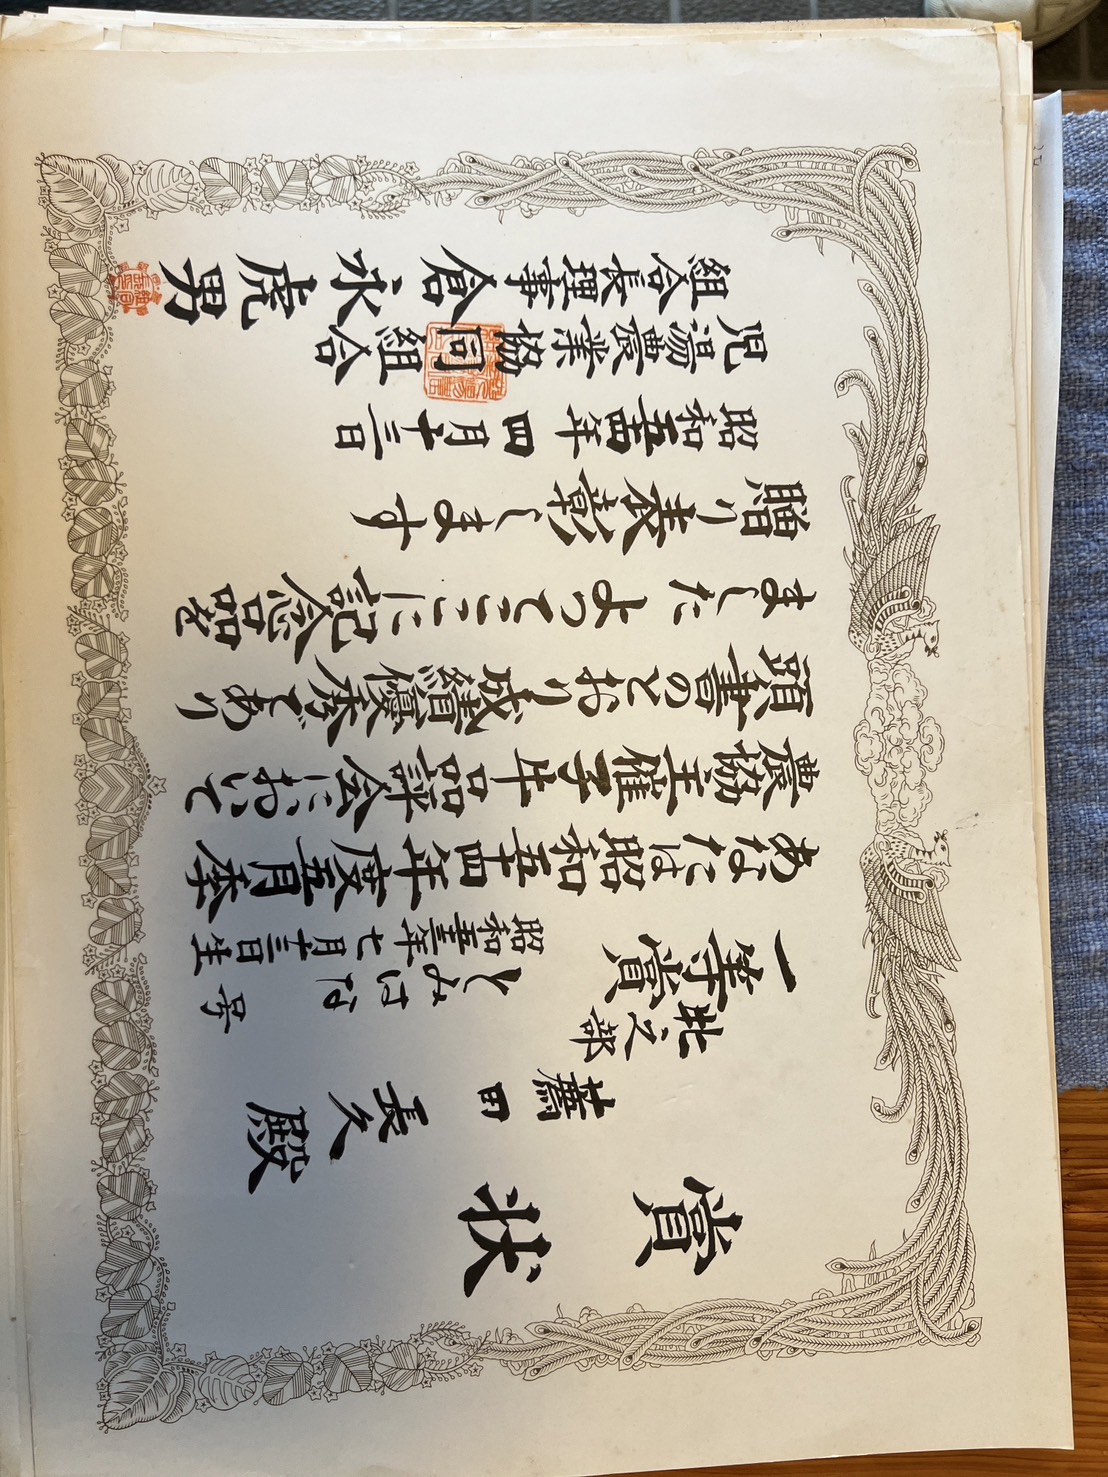 賞状
田長久殿
北之部
一等賞
とみはな号
昭和五三年七月十三日生
あなたは昭和五十四年度五月本
農協主催子牛品評会において
頭書のとおり成績優秀であり
ましたよってここに記念品を
贈り表彰します
昭和五十四年四月十三日
児湯農業協同組合
組合長理事倉永虎男